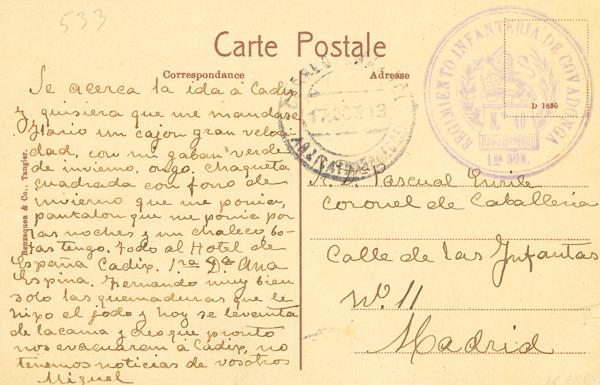 533
Carte Postale
Correspondance
Adresse
D 1830
REGIMIENTO INFANTERIA DE COVADONGA
N. 40
1er BON.
17 OCT 13
Benzaquen & Co., Tangier.
Se acerca la ida á Cadiz
y quisiera que me mandase
Mario un cajon gran veloci
dad, con mi gaban verde
de invierno, chaqueta
cuadrada con forro de
invierno que me ponia,
pantalon que me ponia por
las noches y un chaleco, bo-
tas tengo. Todo al Hotel de
España Cadiz. Sra. Dª Ana
Espina. Fernando muy bien
solo las quemaduras que le
hizo el yodo y hoy se levanta
de la cama y creo que pronto
nos evacuaran á Cadiz, no
tenemos noticias de vosotros
Miguel
Pascual Enrile
Coronel de Caballeria
Calle de las Infantas
Nº 11
Madrid